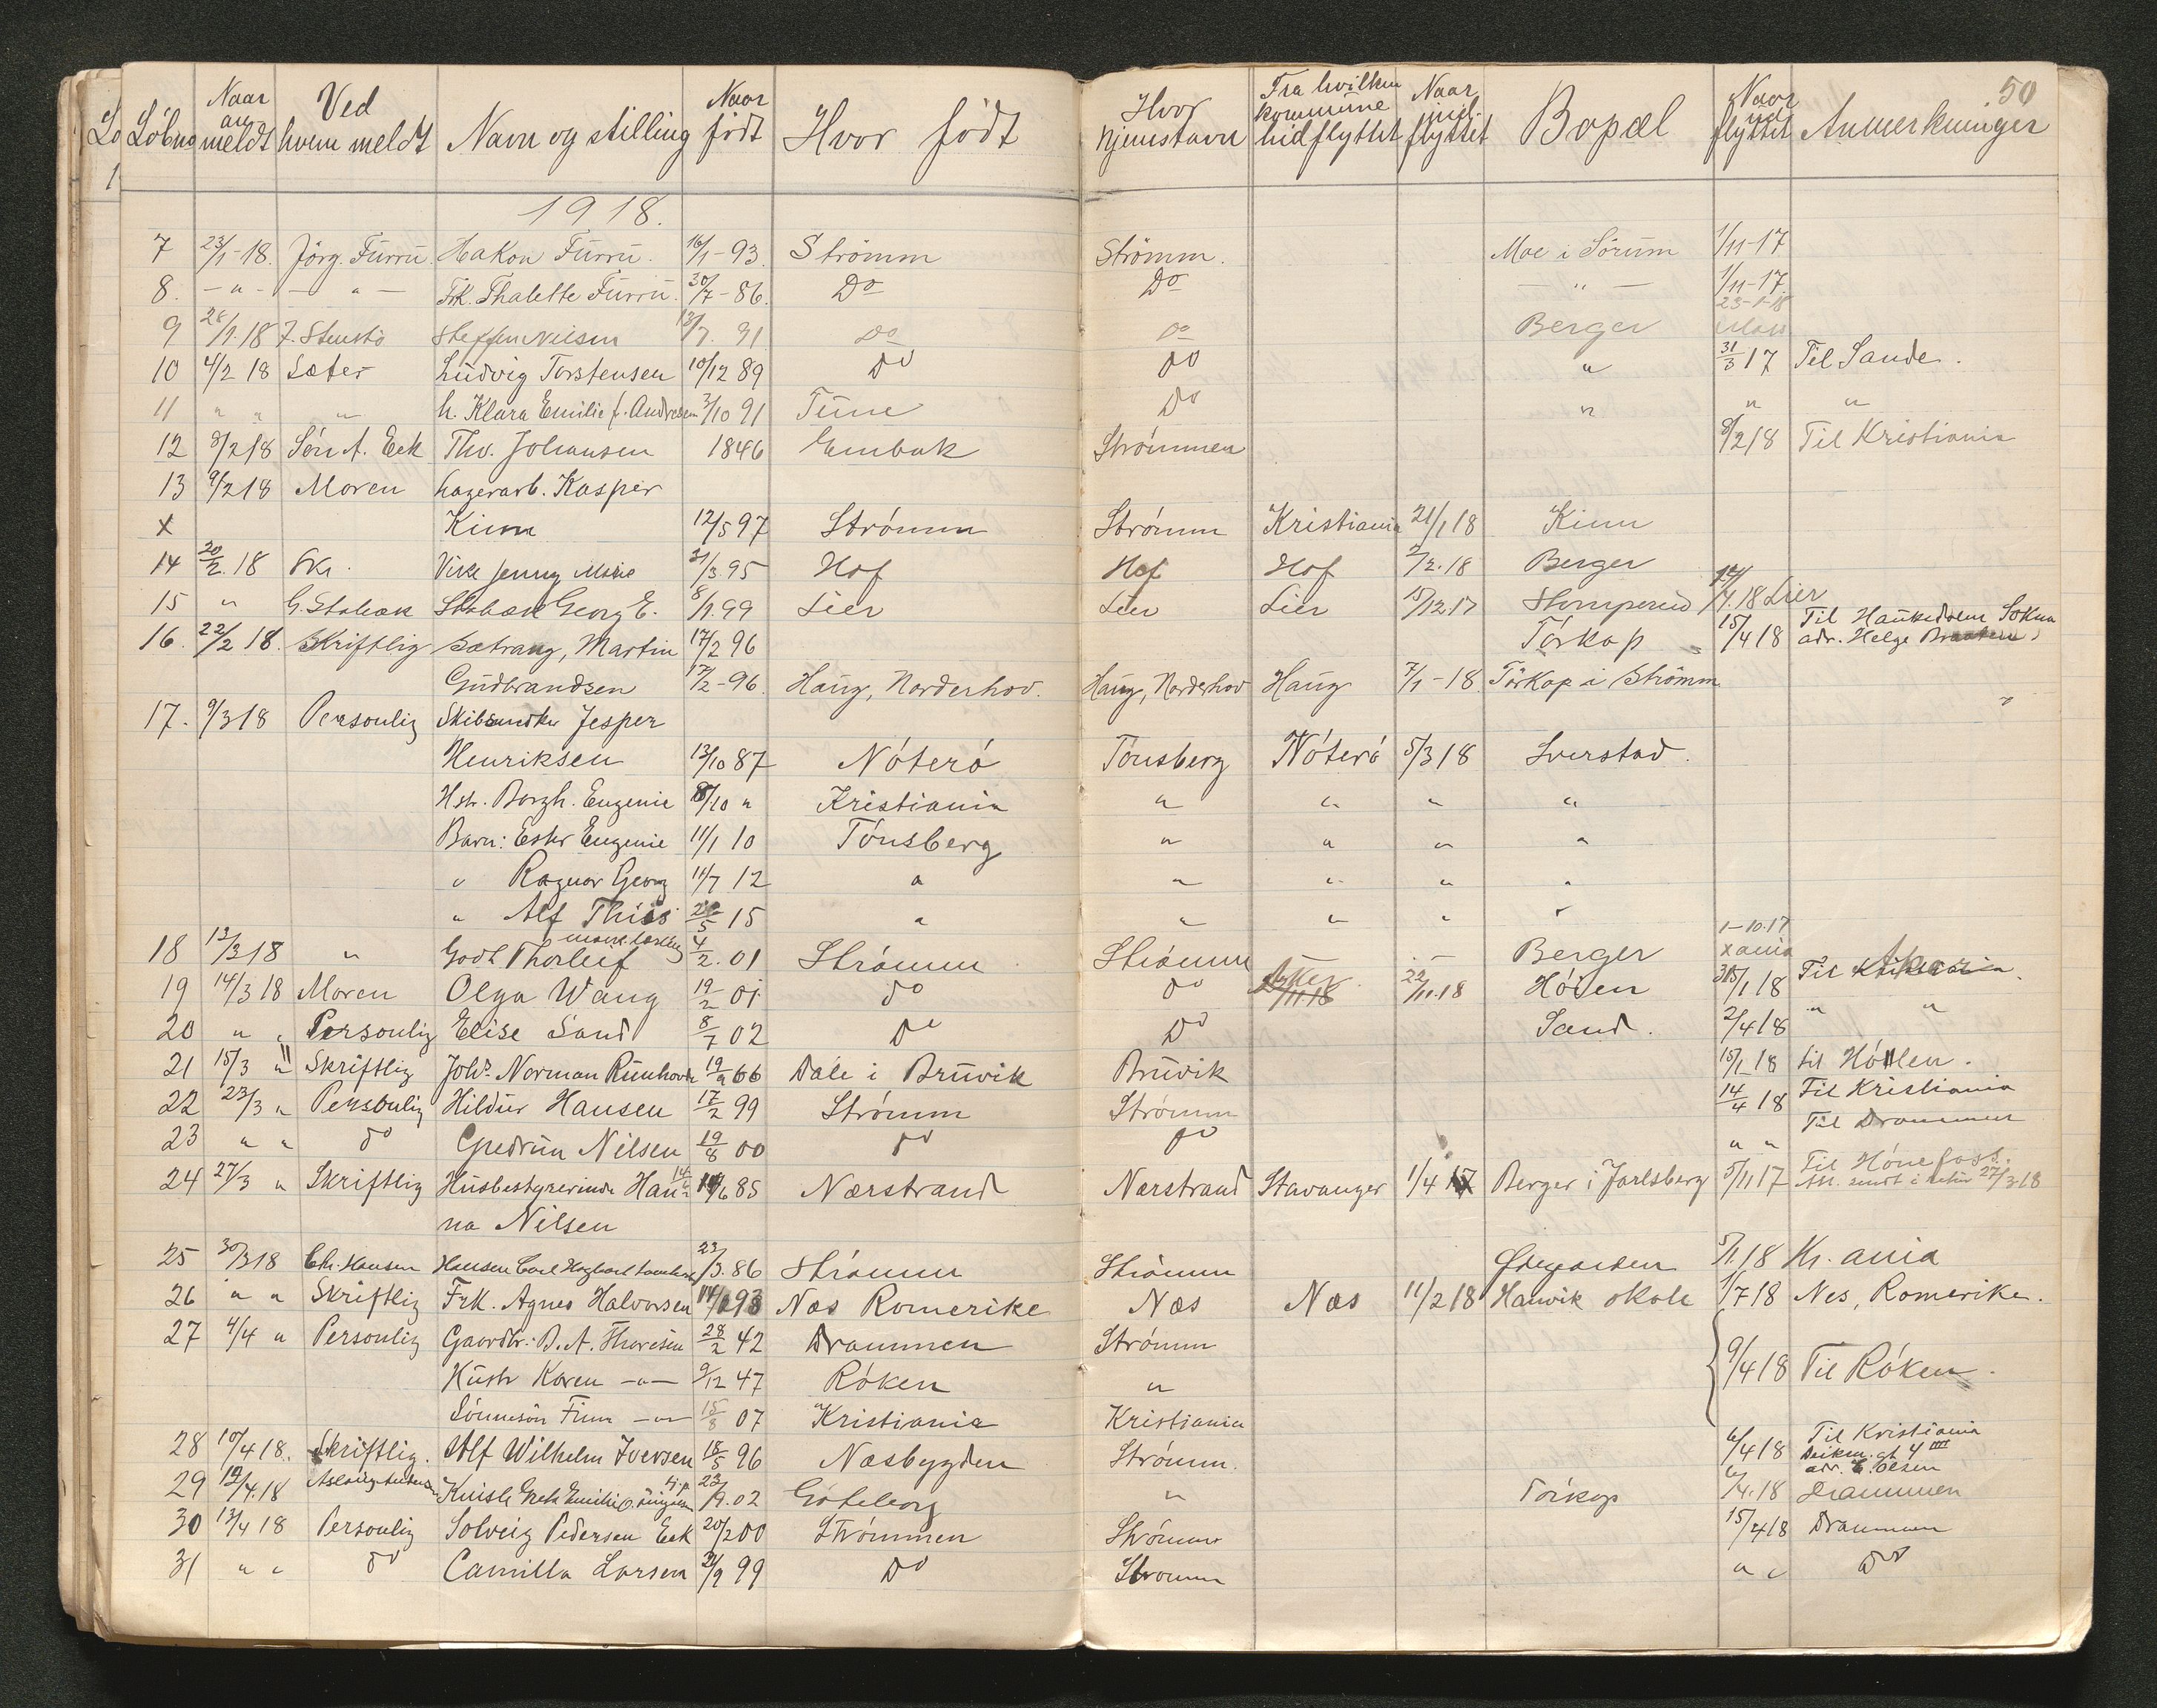 50
Löbno | Naar anmeldt | Ved hvem meldt | Navn og stilling | Naar födt | Hvor födt | Hvor hjemstavn | Fra hvilken kommune hidflyttet | Naar indflyttet | Bopæl | Naar udflyttet | Anmerkninger
1918.
7 23/1-18. Jörg. Furru. Hakon Furru. 16/1-93. Strömm Strömm. Moe i Sörum 1/11-17
8. -"- -"- Frk. Thalette Furru. 30/7-86. Do Do -"- 1/11-17
23-1-18
9 26/1.18 J. Stenstö Steffen Nilsen 13/7. 91 Do Do Berger
10 4/2 18 Sæter Ludvig Torstensen 10/12 89 do do " 31/3 17 Til Sande.
11 " " " h. Klara Emilie f. Andresen 3/10 91 Tune Do " " "
12 8/2 18 Sön A. Eek Thv. Johansen 1846 Embak Strömmen 8/2 18 Til Kristiania
13 9/2 18 Moren Lagerarb. Kasper
x Kinn 12/5 97 Strömm Strömm Kristiania 21/1 18 Kinn
14 20/2.18 Skr. Vike Jenny Marie 21/3.95 Hof Hof Hof 2/2.18 Berger
15 " G. Stabæk Stabæk Georg E. 8/1.99 Lier Lier Lier 15/12.17 Stomperud 14/4.18 Lier
16. 22/2 18. Skriftlig Sætrang, Martin 17/2 96 Törkop 15/4 18 Til Haukedalen Sokna
adr. Helge Braaten
Gudbrandsen 17/2-96. Haug, Norderhov. Haug, Norderhov Haug 7/1-18 Törkop i Strömm
17. 9/3 18 Personlig Skibsmdkr Jesper
Henriksen 13/10 87 Nöterö Tönsberg Nöterö 5/3 18 Sverstad.
Hstr. Borgh. Eugenie 8/10 " Kristiania " " " "
Barn: Ester Eugenie 11/1 10 Tönsberg " " " "
" Ragnar Georg 11/7 12 " " " " "
" Alf Thiis 20/5 15 " " " " "
1-10.17
18 13/3 18 " Godt Thorleif 4/2.01 Strömm Strömm - .- Berger xania
19 14/3 18 Moren Olga Wang 19/2 01 do do Asker 22/11.18 Höien 30/1 18 Til Kristiania. Asker
20 " " Personlig Elise Sand 8/7 02 do Do Sand. 2/4 18 " "
21 15/3 " Skriftlig Johs. Norman Runhovde 19/9 66 Dale i Bruvik Bruvik 15/1 18 til Hölen.
22 23/3 " Personlig Hildur Hansen 17/2 99 Strömm Strömm 14/4 18 Til Kristiania
23 " " do Gudrun Nilsen 19/8 00 do do " " Til Drammen
24 27/3 " Skriftlig Husbestyrerinde Han- 14/6 85 Nærstrand Nærstrand Stavanger 1/4 17 Berger i Jarlsberg 5/11 17 Til Hönefoss.
Att. sendt i retur 27/3 18
na Nilsen
25 30/3 18 Chr. Hansen Hansen Carl Hagbart 23/3.86 Strömm Strömm Ödegaarden 5/1.18 Kr. ania
26 " " Skriftlig Frk. Agnes Halvorsen 14/2 93 Næs Romerike Næs Næs 11/2 18 Hanvik skole 1/7 18 Nes, Romerike.
27 4/4 " Personlig Gaardbr. B. A. Thoresen 28/2 42 Drammen Strömm
Hustr Karen -"- 9/12 47 Röken " 9/4 18 Til Röken.
Sönnesön Finn -"- 15/8 07 Kristiania Kristiania
28 10/4 18. Skriftlig. Alf Wilhelm Iversen 18/5 96 Næsbygden Strömm. 6/4 18 Til Kristiania
Deikm. gt 4 IIII
adr. C. Olsen
29 12/4.18 23/9.02 Göteborg " Törkop 6/4.18 Drammen
30 13/4 18 Personlig Solveig Pedersen Eek 20/2 00 Strömmen Strömm 15/4 18 Drammen
31 " " do Camilla Larsen 21/9 99 Do Strömm " " Do